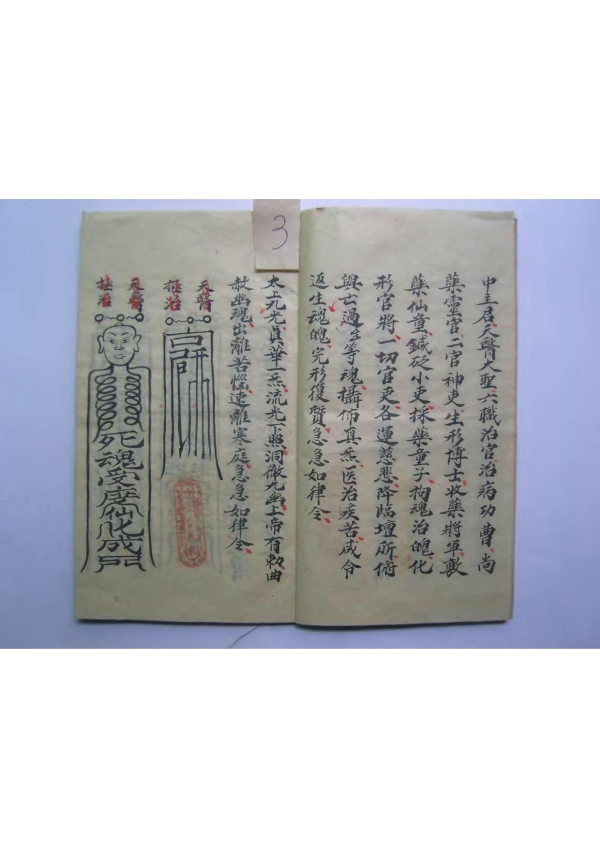 中主君天醫大聖六職治官治病功曹尚
藥靈官二官神吏生形博士收藥將軍敷
藥仙童鍼砭小吏採藥童子拘魂治魄化
形官將一切官吏各運慈悲降臨壇所俯
與亡過△等魂攝佈真炁医治疾苦咸令
返生魂魄完形復質急急如律令
3
太上九光真華一炁流光下照洞徹九幽上帝有勅曲
赦幽魂出離苦惱速離寒庭急急如律令
天醫
拯治
天醫
拯治
死魂受度仙化成